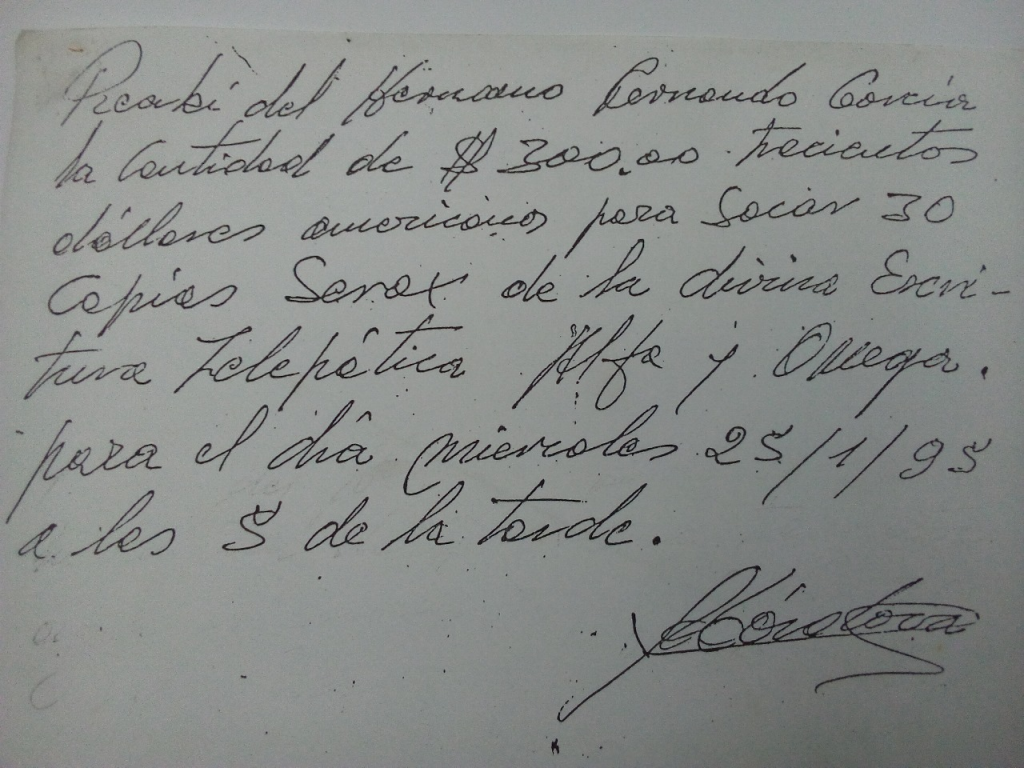 Recibí del Hermano Fernando García
la Cantidad de $ 300.00 trecientos
dóllares americanos para Sacar 30
Copias Serox de la divina Escri-
tura Telepática Alfa y Omega.
para el día miercoles 25/1/95
a las 5 de la tarde.